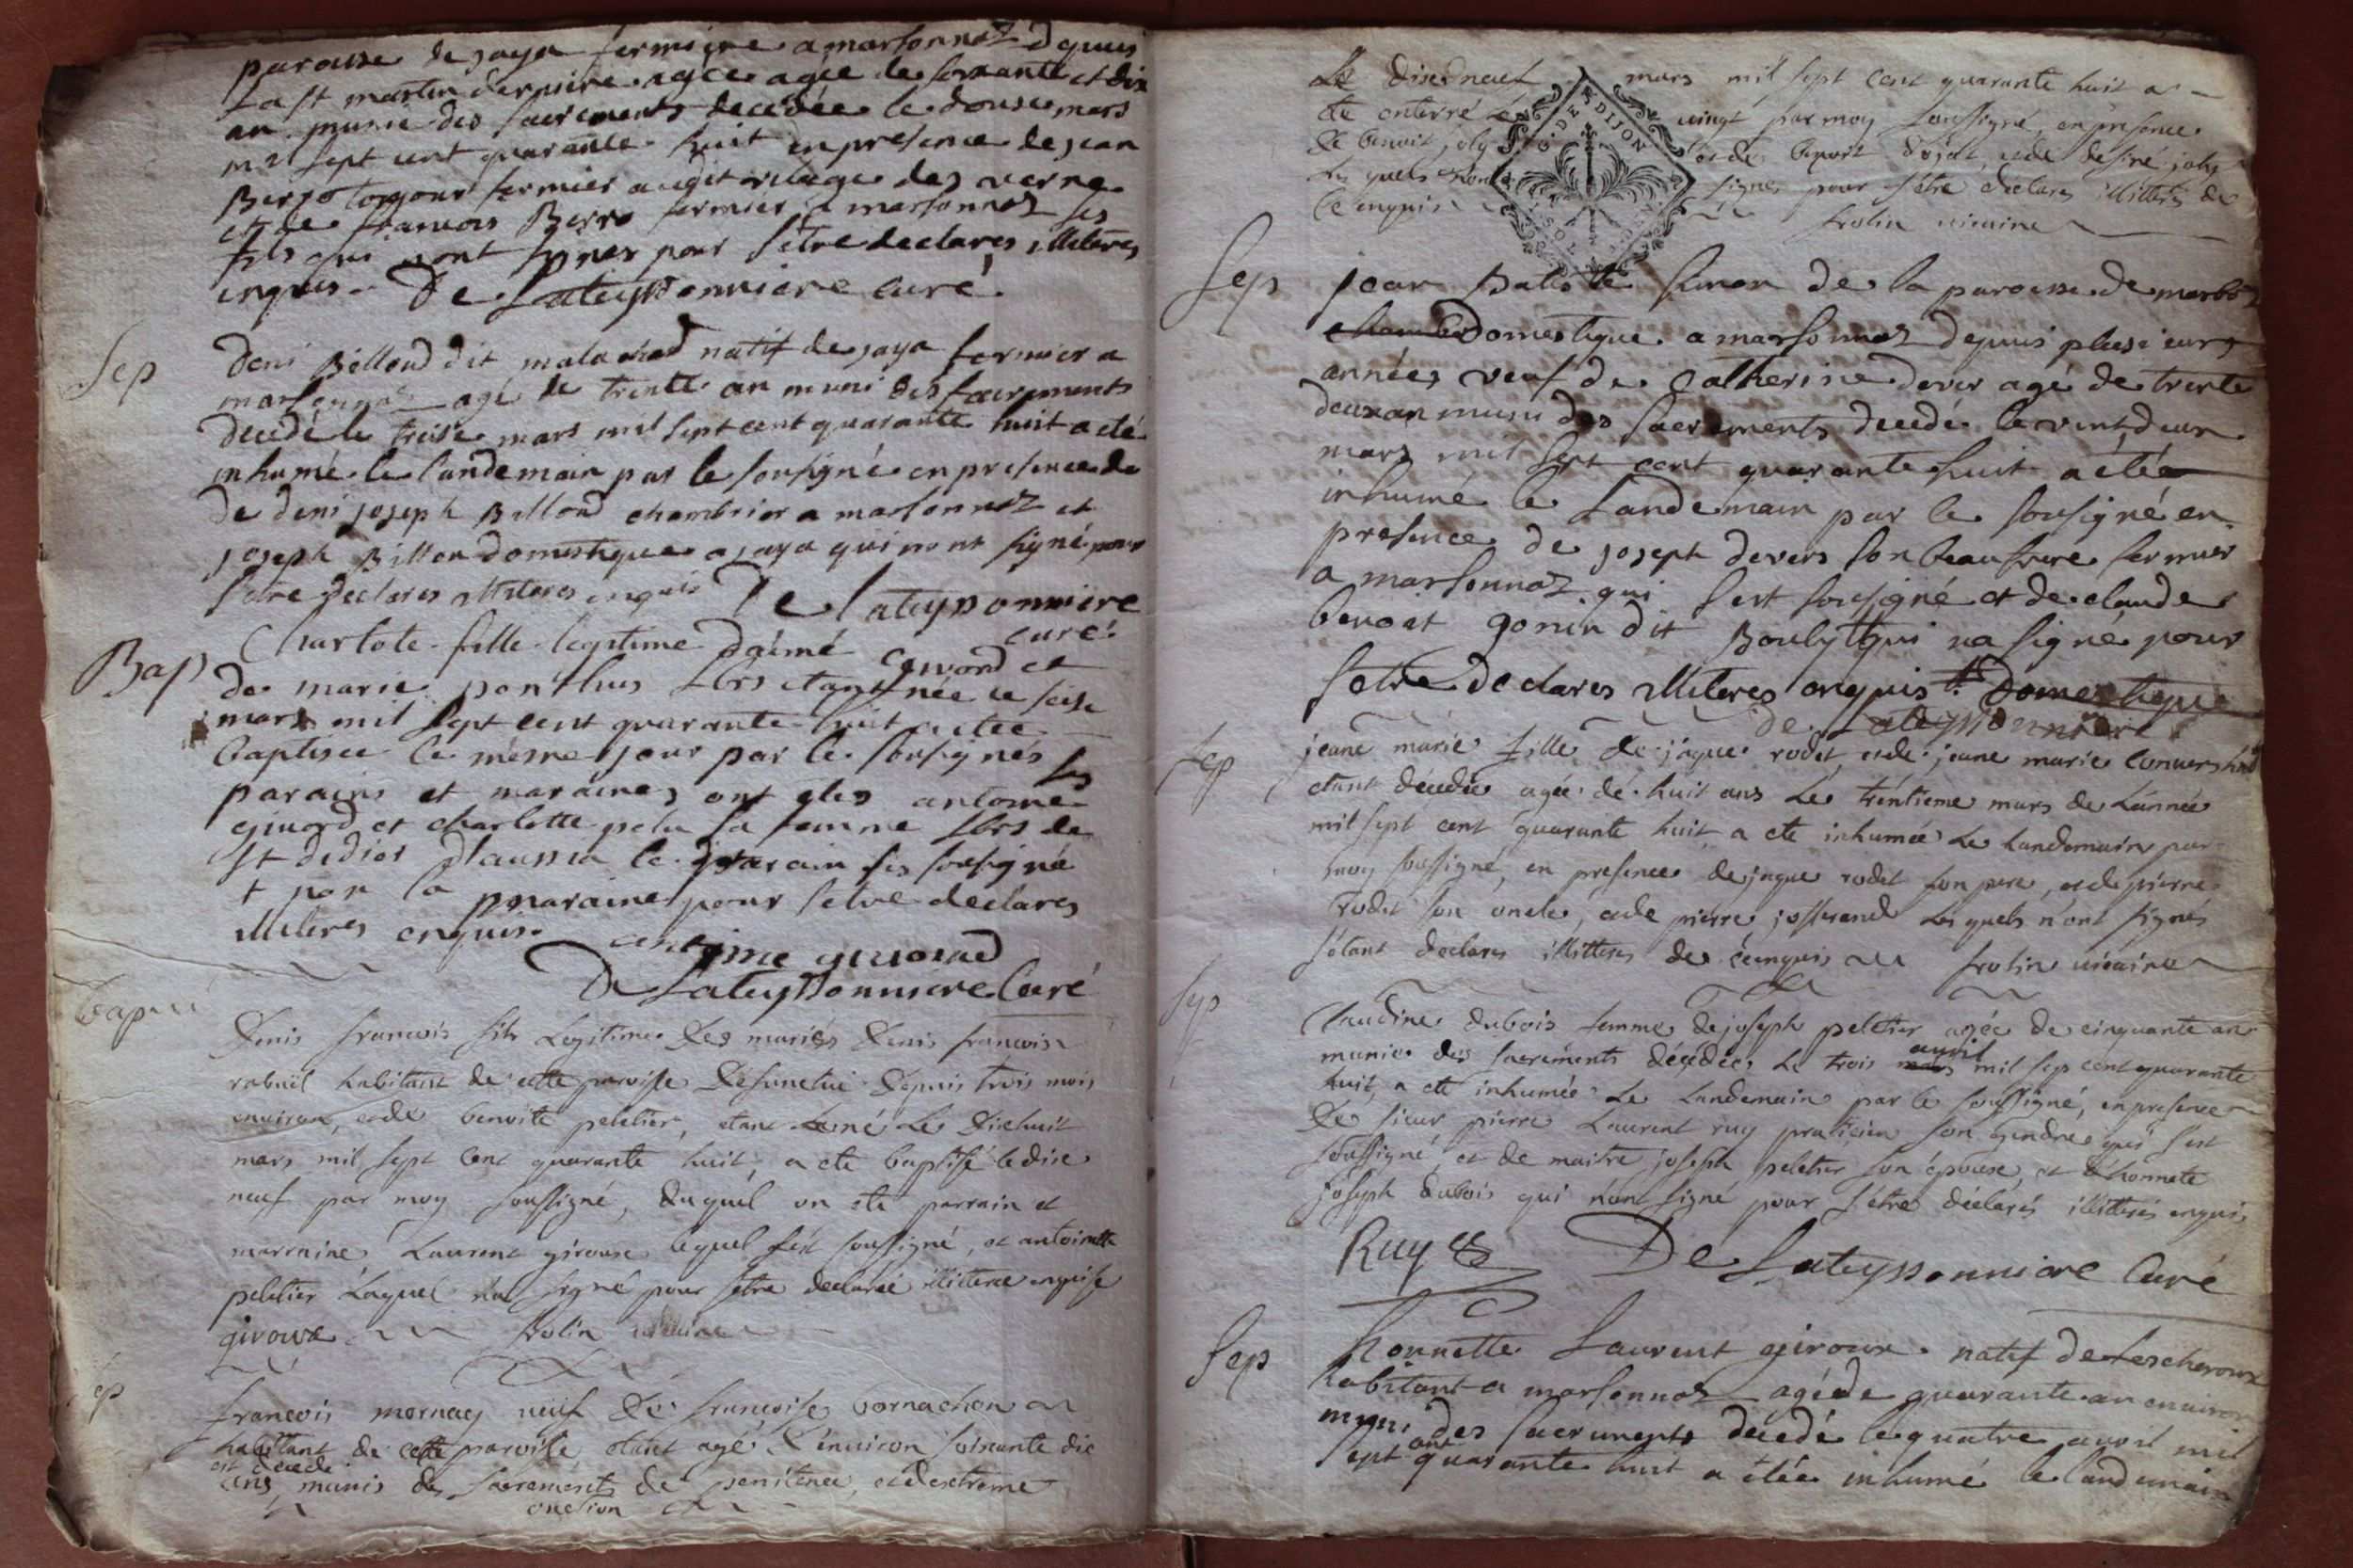 paroisse de jaya fermiere a marsonnaz depuis
La st martin derniere agée agée de soixante et dix
an munie des sacrements decedée le douse mars
mil sept cent quarante huit en presence de jean
fermier audit village des verne
et de francois Berro fermier a marsonnaz ses
fils qui nont signes pour setre declares illiteres
enquis. De Lateyssonniere curé
Sep
Deni Billoud dit malachad natif de jaya fermier a
marsonnas agé de trente an muni des sacrements
decedé le treise mars mil sept cent quarante huit a eté
inhumé le landemain par le sousigné en presence de
de deni joseph Billoud chambrier a marsonnaz et
joseph Billon domestique a jaya qui nont signé pour
setre declares illiteres enquis De Lateyssonniere
curé
Bap
Charlote fille legitime daimé
de marie ponthus etant née le seise
mars mil sept cent quarante huit a etée
baptisee le mesme jour par le sousignés ses
parains et maraines ont etes antoine
et charlotte sa femme de
st didier daussia le parain ses sousigné
t non la maraine pour setre declares
illiteres enquis.
De Lateyssonniere Curé
bap
Denis francois fils Legitime des mariés Denis francois
rabuel habitant de cette paroisse Defunctué Depuis trois mois
environ, et de benoite peletier, etant né Le Dixhuit
mars mil sept Cent quarante huit, a ete baptisé le dixe
neuf par moy soussigné, duquel on ete parrain et
marraine, Laurent giroux lequel sest soussigné, et antoinette
peletier Laquel na signé pour setre declarée illiteree enquise
giroux frolin vicaire
Sep
francois mornay veuf De francoise vornachon
habitant de cette paroisse etant agé D'environ soixante dix
est decedé
ans munis des sacrements de penitence, et dextreme
onction
Le Dixeneuf mars mil sept cent quarante huit a
ete enterré Le vingt par moy soussigné, en presence
de benoit joly et de benoit Dojat, et de desiré joly
Les quels nont signes pour setre déclares illitteres de
ce enquis frolin vicaire
Sep
jean Batiste de la paroisse de marboz
domestique a marsonnaz depuis plusieurs
années veuf de Catherine dever agé de trente
deux an muni des sacrements decedé le vint deux
mars mil sept cent quarante huit a etée
inhumé le Landemain par le sousigné en
presence de joseph devers son beau frere fermier
a marsonnaz qui sest sousigné et de claude
benoit gonin dit Bouly qui na signé pour
setre declares illiteres enquis domestique
De Lateyssonniere
Sep
jeane marie fille de jaque rodet, et de jeane marie Convers
etant décedée agée de huit ans Le trentieme mars de Lannée
mil sept cent quarante huit, a ete inhumée Le Landemain par
moy soussigné, en presence de jaque rodet son pere, et de pierre
rodet son oncle, et de pierre josserand Les quels n'ont signés
s'étant declares illitteres de ce enquis frolin vicaire
Sep
Claudine dubois femme de joseph peletier agée de cinquante an
munie des sacrements décédée Le trois mars avril mil sep cent quarante
huit, a ete inhumée Le Landemain par le soussigné, en presence
De sieur pierre Laurent ruy praticien son gendre qui s'est
soussigné, et de maitre joseph peletier son epoux, et d'honnete
joseph dubois qui n'ont signé pour s'etre déclarés illitteres enquis
Ruy De Lateyssonniere Curé
Sep
honnette Laurent giroux natif de Lescheroux
habitant a marsonnaz agé de quarante an environ
muni des sacrements decedé le quatre avril mil
sept cent quarante huit a etée inhumé le landemain